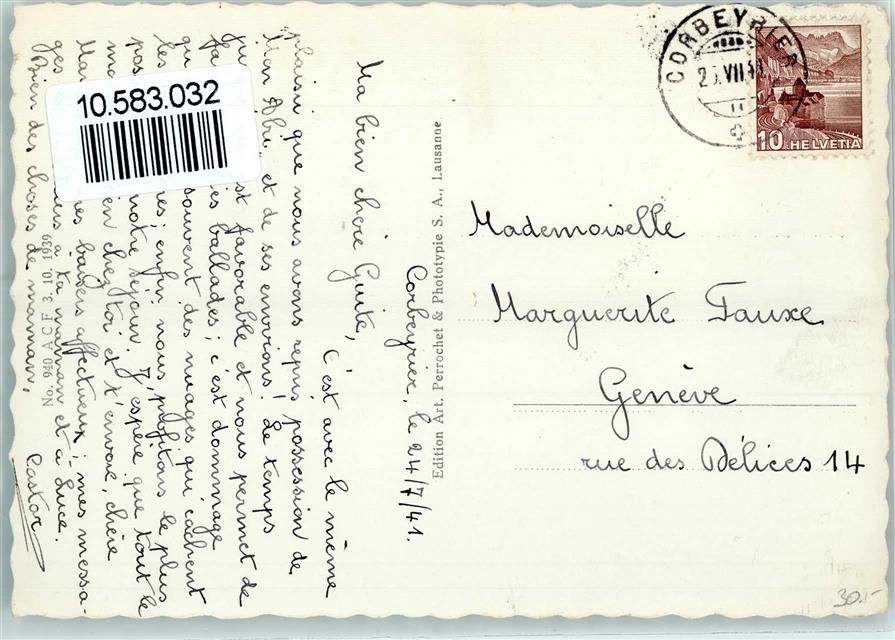 10.583.032
CORBEYRIER
VII 41
10 HELVETIA
Mademoiselle
Marguerite Fauxe
Genève
rue des Délices 14
Edition Art. Perrochet & Phototypie S. A., Lausanne
No. 940 A C F 3. 10. 1939
Corbeyrier, le 24/7/41.
Ma bien chère Guite,
C'est avec le même
plaisir que nous avons repris possession de
Mon Abri et de ses environs! Le temps
st favorable et nous permet de
es ballades; c'est dommage
souvent des nuages qui cachent
les enfin nous profitons le plus
pos notre séjour. J'espère que tout le
en chez toi et t'envoie, chère
baisers affectueux; mes messa-
ges à ta maman et à Luce.
Bien des choses de maman,
Castor
30.-